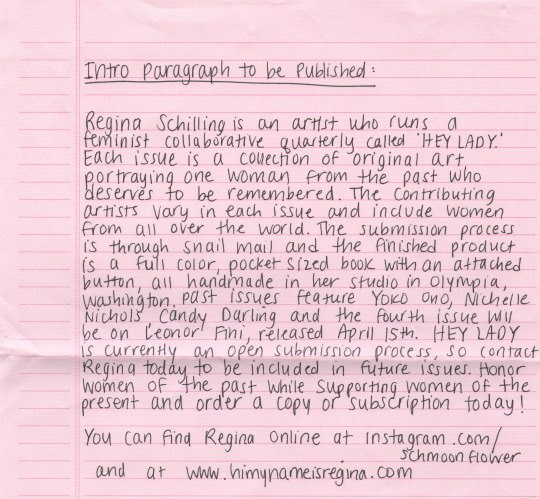 Intro paragraph to be Published:
Regina Schilling is an artist who runs a
feminist collaborative quarterly called 'HEY LADY.'
Each issue is a collection of original art
portraying one woman from the past who
deserves to be remembered. The Contributing
artists vary in each issue and include women
from all over the world. The submission process
is through snail mail and the finished product
is a full color, pocket sized book with an attached
button, all handmade in her studio in Olympia,
Washington. past issues feature Yoko Ono, Nichelle
Nichols, Candy Darling and the fourth issue will
be on Leonor Fini, released April 15th. HEY LADY
is currently an open submission process, so contact
Regina today to be included in future issues. Honor
women of the past while supporting women of the
present and order a copy or subscription today!
You can find Regina online at instagram.com/
schmoonflower
and at www.himynameisregina.com